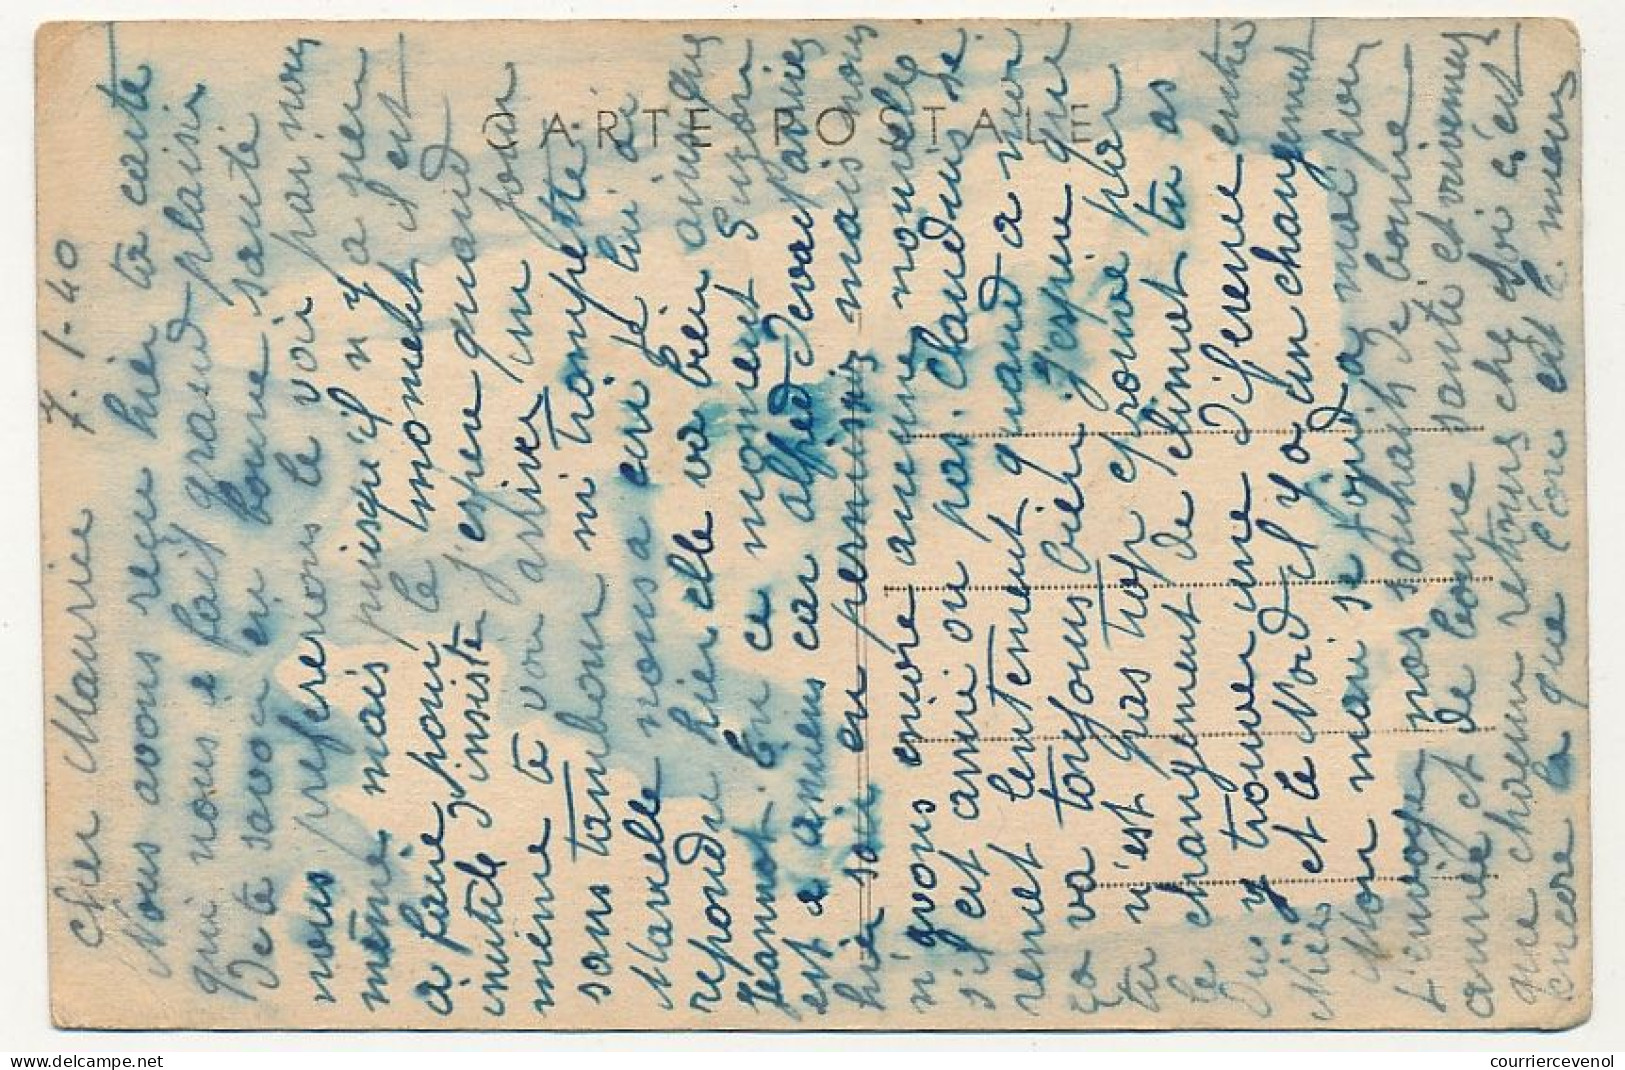 CARTE POSTALE
7-1-40
Cher Maurice
Nous avons reçu hier ta carte
qui nous a fait grand plaisir
De te savoir en bonne santé
nous prefererions le voir par nous
même mais puisqu'il n y a rien
à faire pour le moment il est
inutile d'insister j'espere quand
même te voir arriver un jour
sans tambour ni trompette
Marcelle nous a ecri je lui ai
repondu hier elle va bien ainsi que
Jeannot. En ce moment Suzon
est a amiens car alfred devait arriver
hier soir en permission mais nous
n'avons encore aucune nouvelle
s'il est arrivé ou pas. Claudius se
remet lentement quand a moi
ça va toujours bien j'espere que
tu n'est pas trop eprouvé par
le changement de climat tu as
du y trouver une diference entre
Nice et le Nord il y a un changement
Mon mari se joind a moi pour
t'envoyer nos souhaits de bonne
année et de bonne santé et
que chacun retour chez soi c'est
encore la que l'on est le mieux
courriercevenol